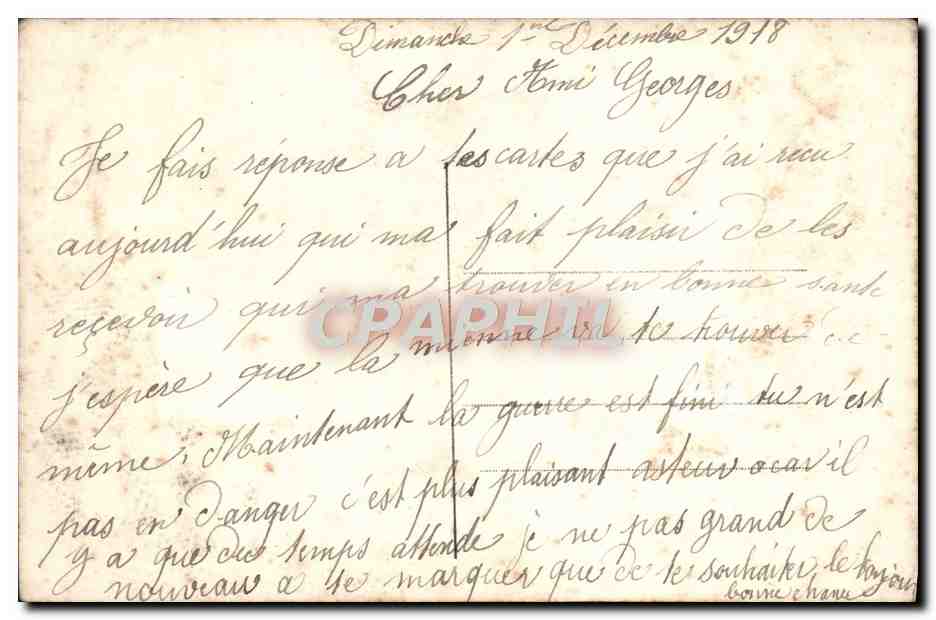 Dimanche 1er Décembre 1918
Cher Ami Georges
Je fais réponse a tes cartes que j'ai reçu
aujourd'hui qui ma fait plaisir de les
reçevoir qui ma trouver en bonne sante
j'espère que la mienne va te trouver de
même. Maintenant la guerre est fini tu n'est
pas en danger c'est plus plaisant asteur car il
y a que du temps attende je ne pas grand de
nouveau a te marquer que de te souhaiter le toujour
bonne chance
CPAPHIL